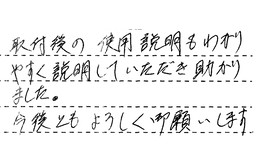 取付後の使用説明もわかり
やすく説明していただき助かり
ました。
今後ともよろしく御願いします